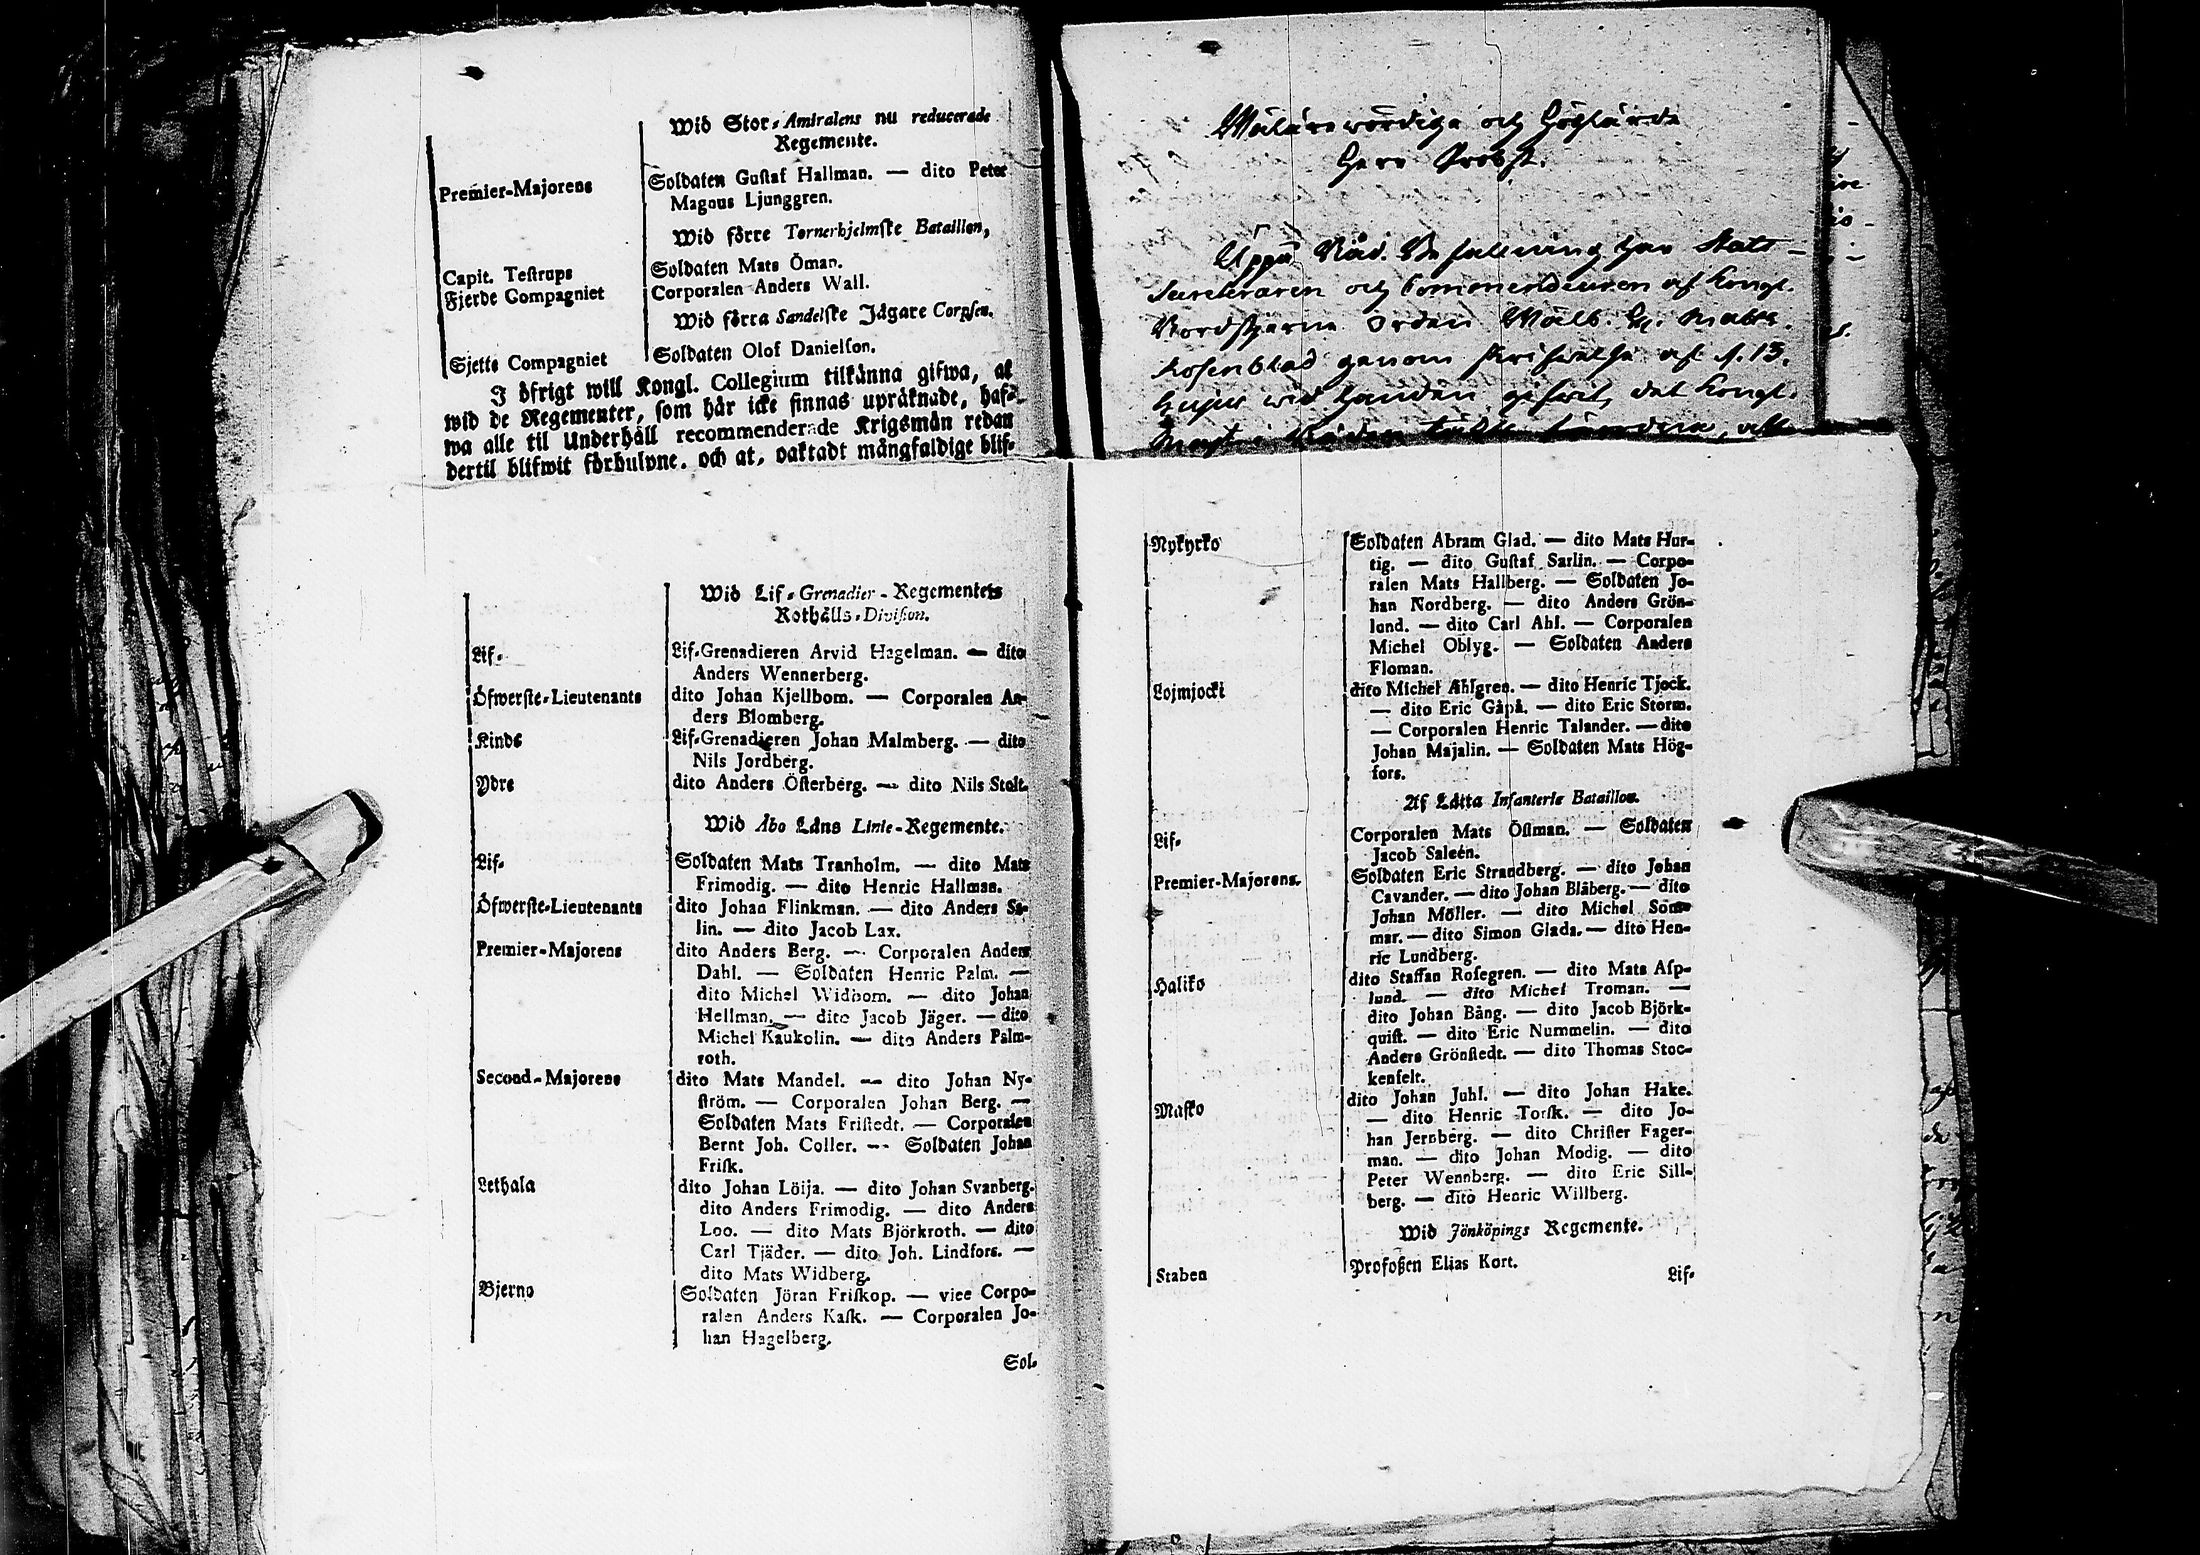 Wid Stor-Amiralens nu reducerade
Regemente.
Premier-Majorens
Soldaten Gustaf Hallman. — dito Peter
Magnus Ljunggren.
Wid förre Tornerhjelmske Bataillon,
Capit. Testrups
Soldaten Mats Öman.
Fjerde Compagniet
Corporalen Anders Wall.
Wid förra Sandelske Jägare Corpsen.
Sjette Compagniet
Soldaten Olof Danielson.
I öfrigt will Kongl. Collegium tilkänna gifwa, at
wid de Regementer, som här icke finnas upräknade, haf-
wa alle til Underhåll recommenderade Krigsmän redan
dertil blifwit förhulpne, och at, oaktadt mångfaldige blif-
Wälärewördige och Höglärde
Herr Probst.
Uppå Nåd. Befallning har Stats-
Secreteraren och Commendeuren af Kongl.
Nordstjerne Orden Wälb. Hr. Matth.
Rosenblad genom skrifwelse af d. 13.
hujus wid handen gifwit, det Kongl.
Wid Lif-Grenadier-Regementets
Rothålls-Division.
Lif-
Lif-Grenadieren Arvid Hagelman. — dito
Anders Wennerberg.
Öfwerste-Lieutenants
dito Johan Kjellbom. — Corporalen An-
ders Blomberg.
Kinds
Lif-Grenadieren Johan Malmberg. — dito
Nils Jordberg.
Ydre
dito Anders Österberg. — dito Nils Stolt.
Wid Åbo Läns Linie-Regemente.
Lif-
Soldaten Mats Tranholm. — dito Mats
Frimodig. — dito Henric Hallman.
Öfwerste-Lieutenants
dito Johan Flinkman. — dito Anders Sa-
lin. — dito Jacob Lax.
Premier-Majorens
dito Anders Berg. — Corporalen Anders
Dahl. — Soldaten Henric Palm. —
dito Michel Widbom. — dito Johan
Hellman. — dito Jacob Jäger. — dito
Michel Kaukolin. — dito Anders Palm-
roth.
Second-Majorens
dito Mats Mandel. — dito Johan Ny-
ström. — Corporalen Johan Berg. —
Soldaten Mats Fristedt. — Corporalen
Bernt Joh. Coller. — Soldaten Johan
Frisk.
Lethala
dito Johan Löija. — dito Johan Svanberg.
dito Anders Frimodig. — dito Anders
Loo. — dito Mats Björkroth. — dito
Carl Tjäder. — dito Joh. Lindfors. —
dito Mats Widberg.
Bjerno
Soldaten Jöran Friskop. — vice Corpo-
ralen Anders Kask. — Corporalen Jo-
han Hagelberg.
Sol-
Nykyrko
Soldaten Abram Glad. — dito Mats Hur-
tig. — dito Gustaf Sarlin. — Corpo-
ralen Mats Hallberg. — Soldaten Jo-
han Nordberg. — dito Anders Grön-
lund. — dito Carl Ahl. — Corporalen
Michel Oblyg. — Soldaten Anders
Floman.
Lojmjocki
dito Michel Ahlgren. — dito Henric Tjock.
— dito Eric Gåpå. — dito Eric Storm.
— Corporalen Henric Talander. — dito
Johan Majalin. — Soldaten Mats Hög-
fors.
Af Lätta Infanterie Bataillon.
Lif-
Corporalen Mats Östman. — Soldaten
Jacob Saleén.
Premier-Majorens.
Soldaten Eric Strandberg. — dito Johan
Cavander. — dito Johan Blåberg. — dito
Johan Möller. — dito Michel Som-
mar. — dito Simon Glada. — dito Hen-
ric Lundberg.
Haliko
dito Staffan Rosegren. — dito Mats Asp-
lund. — dito Michel Troman. —
dito Johan Bång. — dito Jacob Björk-
quist. — dito Eric Nummelin. — dito
Anders Grönstedt. — dito Thomas Stoc-
kenfelt.
Masko
dito Johan Juhl. — dito Johan Hake.
— dito Henric Torsk. — dito Jo-
han Jernberg. — dito Christer Fager-
man. — dito Johan Modig. — dito
Peter Wennberg. — dito Eric Sill-
berg. — dito Henric Willberg.
Wid Jönköpings Regemente.
Staben
Profoßen Elias Kort.
Lif-